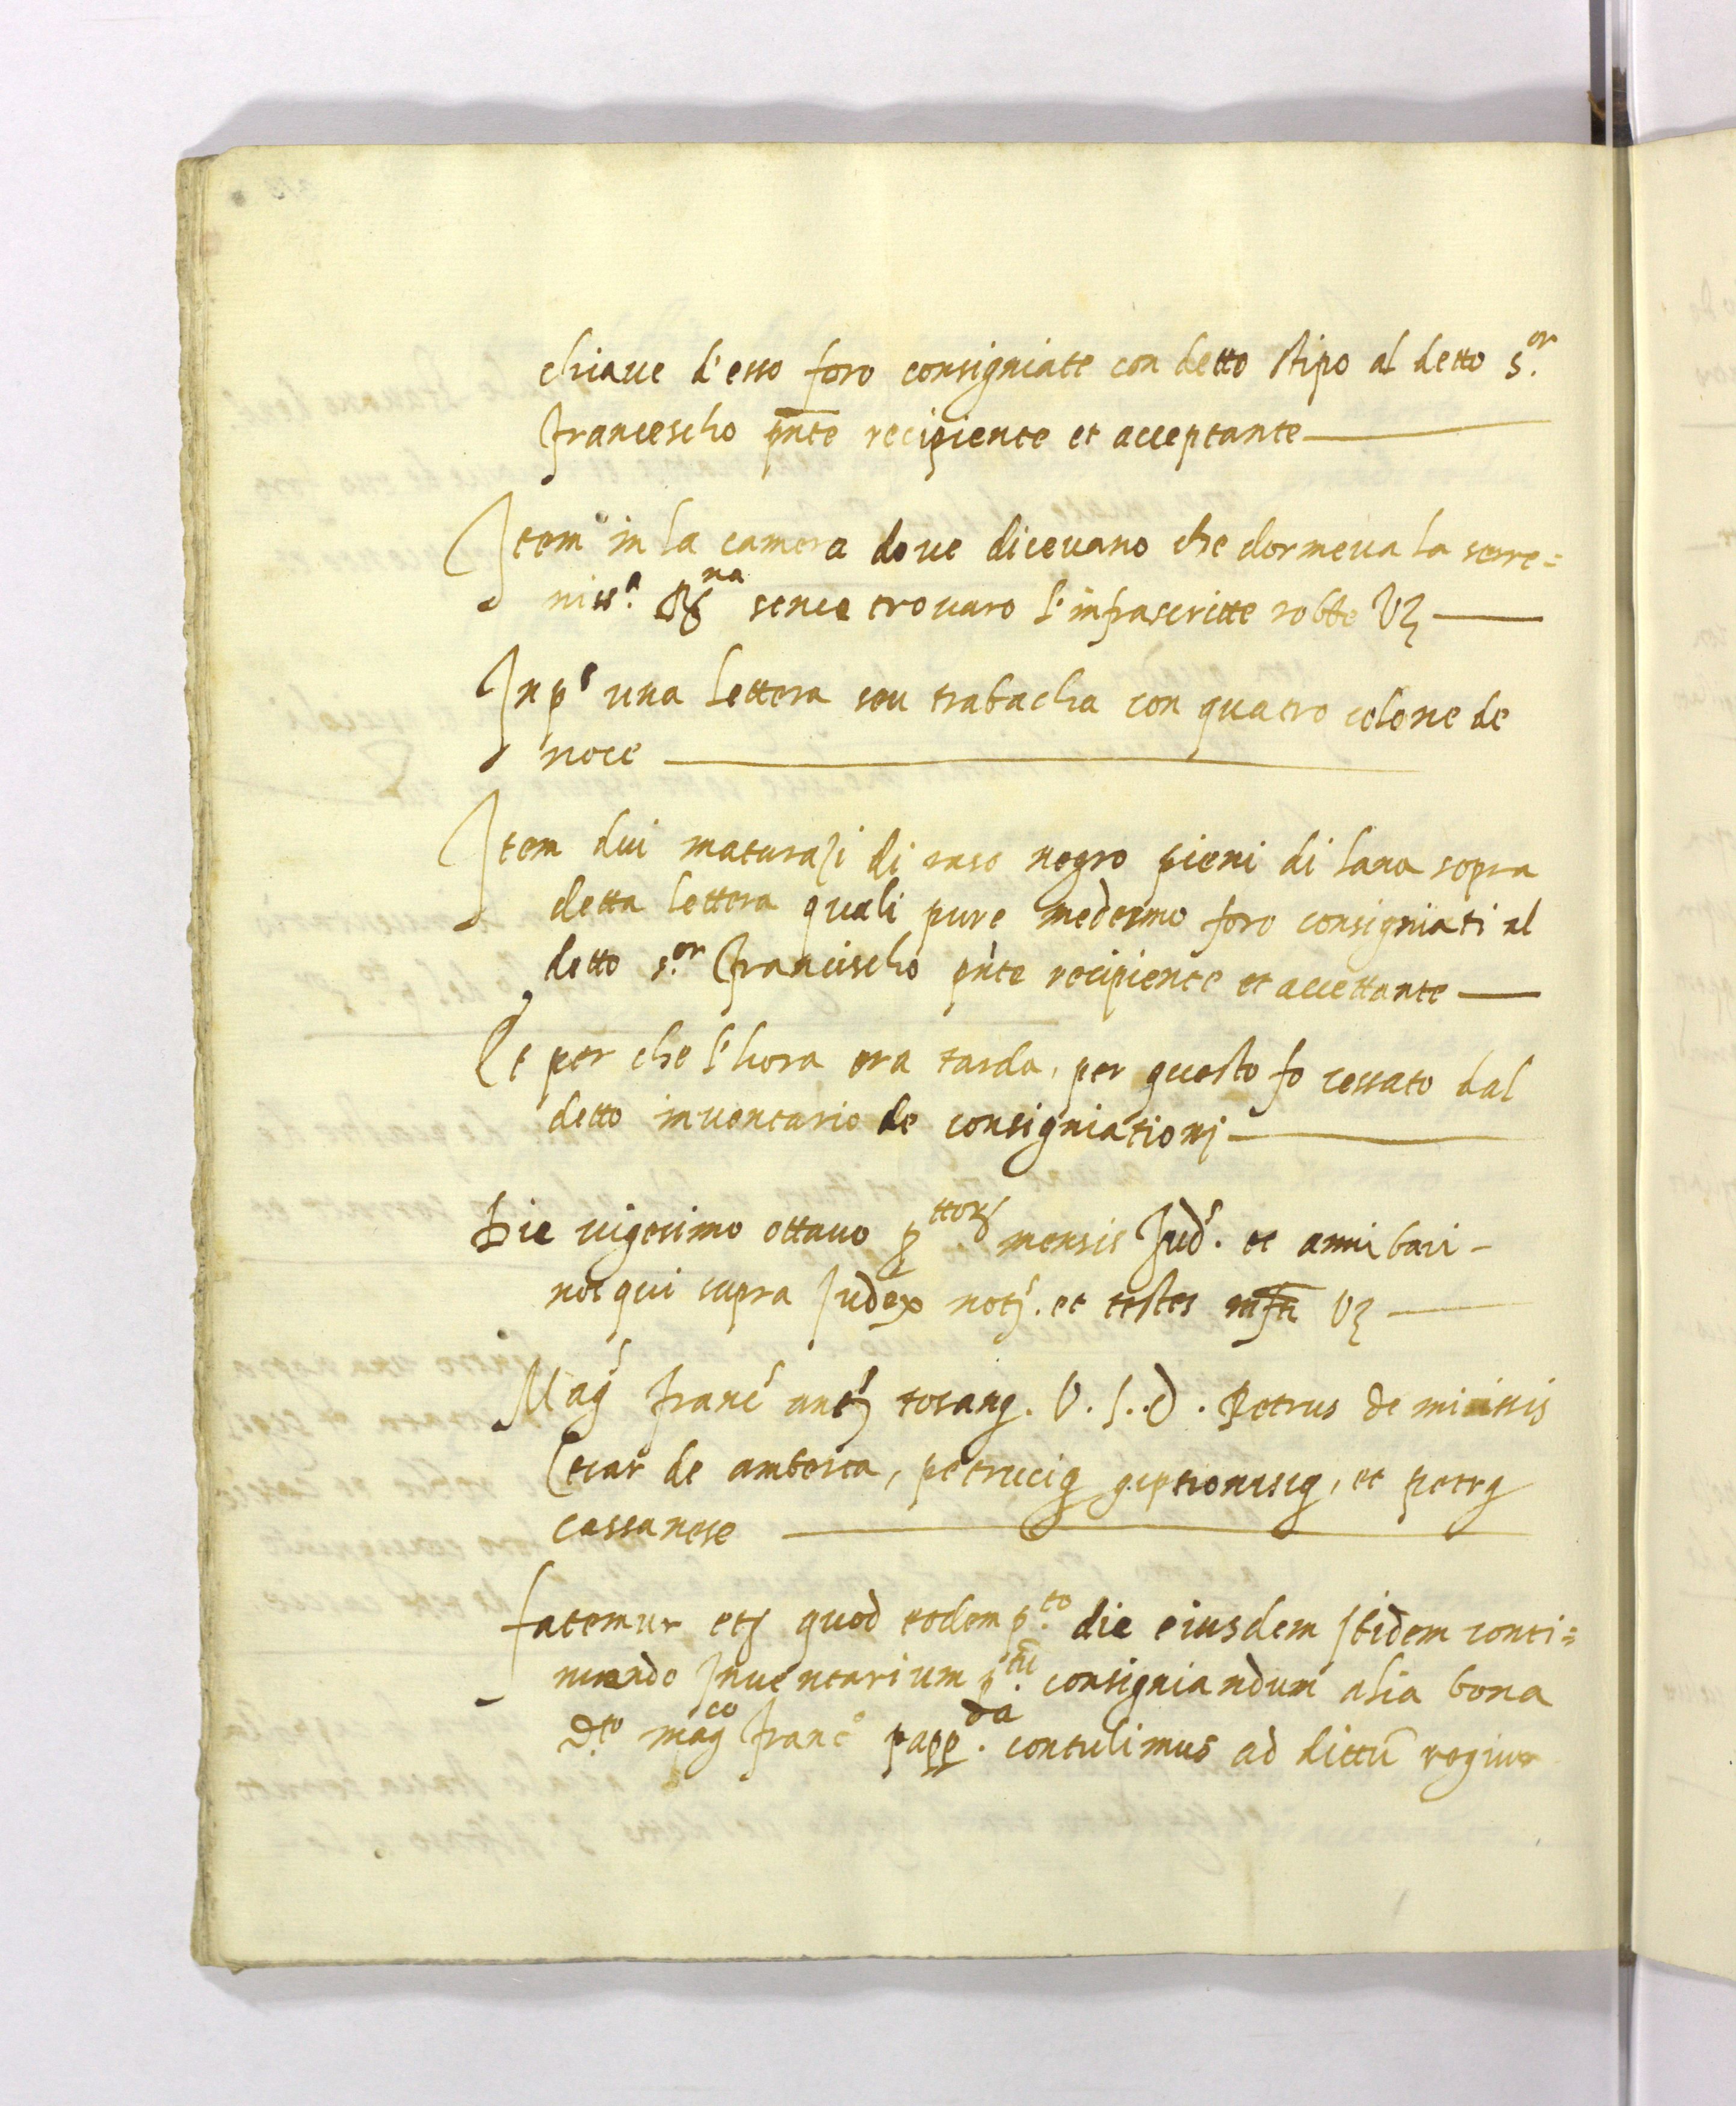 chiaue d'esso foro consigniate con detto stipo al detto s.or
francescho pnte recipiente et acceptante
Item in la camera doue diceuano che dormeua la serre=
niss.a Rna sence trouaro l'infrascritte robbe Vz
In p.s una lettera seu trabacha con quatro colone de
noce
Item dui maturazi di raso negro pieni di lana sopra
detta lettera quali pure medesmo foro consigniati al
detto s.or francischo pnte recipiente et accettante
Et per che l'hora era tarda, per questo fo cessato dal
detto inuentario de consigniationj
Die uigesimo ottauo mensis Ind. et anni bari
nos qui supra Judex notz. et testes Vz
Mag franc antz U.J.D. Petrus de
Cesar de amberta, et petrq
cassanese
fatemur etz quod eodem p.to die eiusdem Ibidem conti=
nuando Inuentarium consigniandum alia bona
d.to magco franc papp.da contulimus ad dittu regium